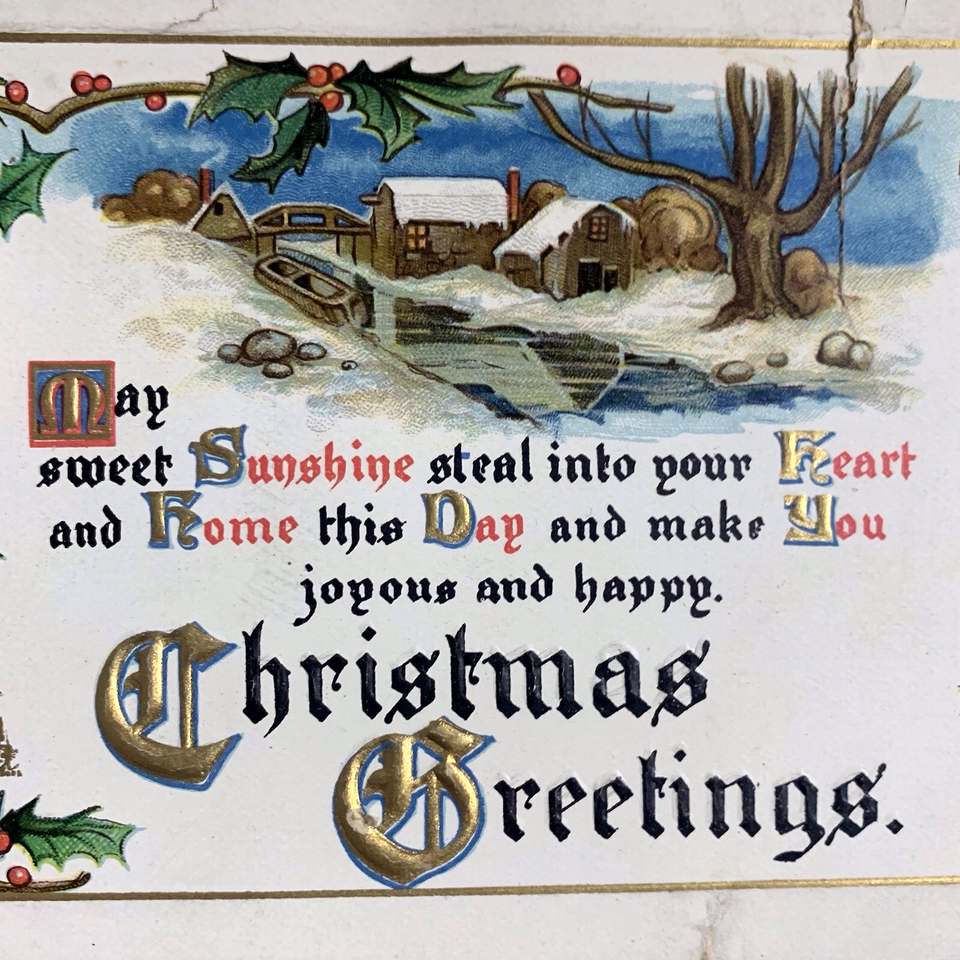 May
sweet Sunshine steal into your Heart
and Home this Day and make You
joyous and happy.
Christmas
Greetings.